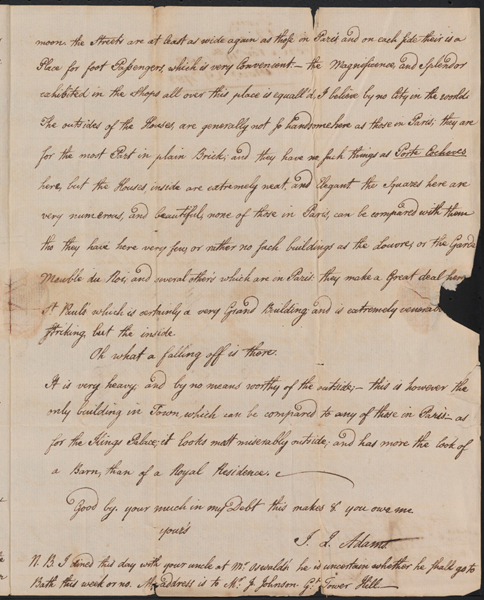 moon. the Streets are at least as wide again as those in Paris and on each side their is a
Place for foot Passengers, which is very Convenient — the Magnificence, and Splendor
exhibited in the Shops all over this place is equall'd, I believe by no City in the world
The outsides of the Houses, are generally not so handsome here as those in Paris; they are
for the most Part in plain Brick; and they have no such things as Porte Cocheres
here, but the Houses inside are extremely neat, and Elegant the Squares here are
very numerous, and beautiful, none of those in Paris, can be compared with them
tho they have here very few, or rither no such buildings as the Louvre, or the Garde
Meuble du Roi, and several others which are in Paris. they make a Great deal here
St Paul's which is certainly a very Grand Building and is extremely venerab
striking, but the inside.
Oh what a falling off is there.
It is very heavy, and by no means worthy of the outside; — this is however the
only building in Town, which can be compared to any of those in Paris — as
for the Kings Palace; it looks most miserably outside; and has more the look of
a Barn, than of a Royal Residence.
Good by. your much in my Debt this makes 8 you owe me
your's
J. Q. Adams
N.B. I dined this day with your uncle at Mr. Oswald's he is uncertain whether he shall go to
Bath this week or no. My address is to Mr. J Johnson. Gt. Tower Hill